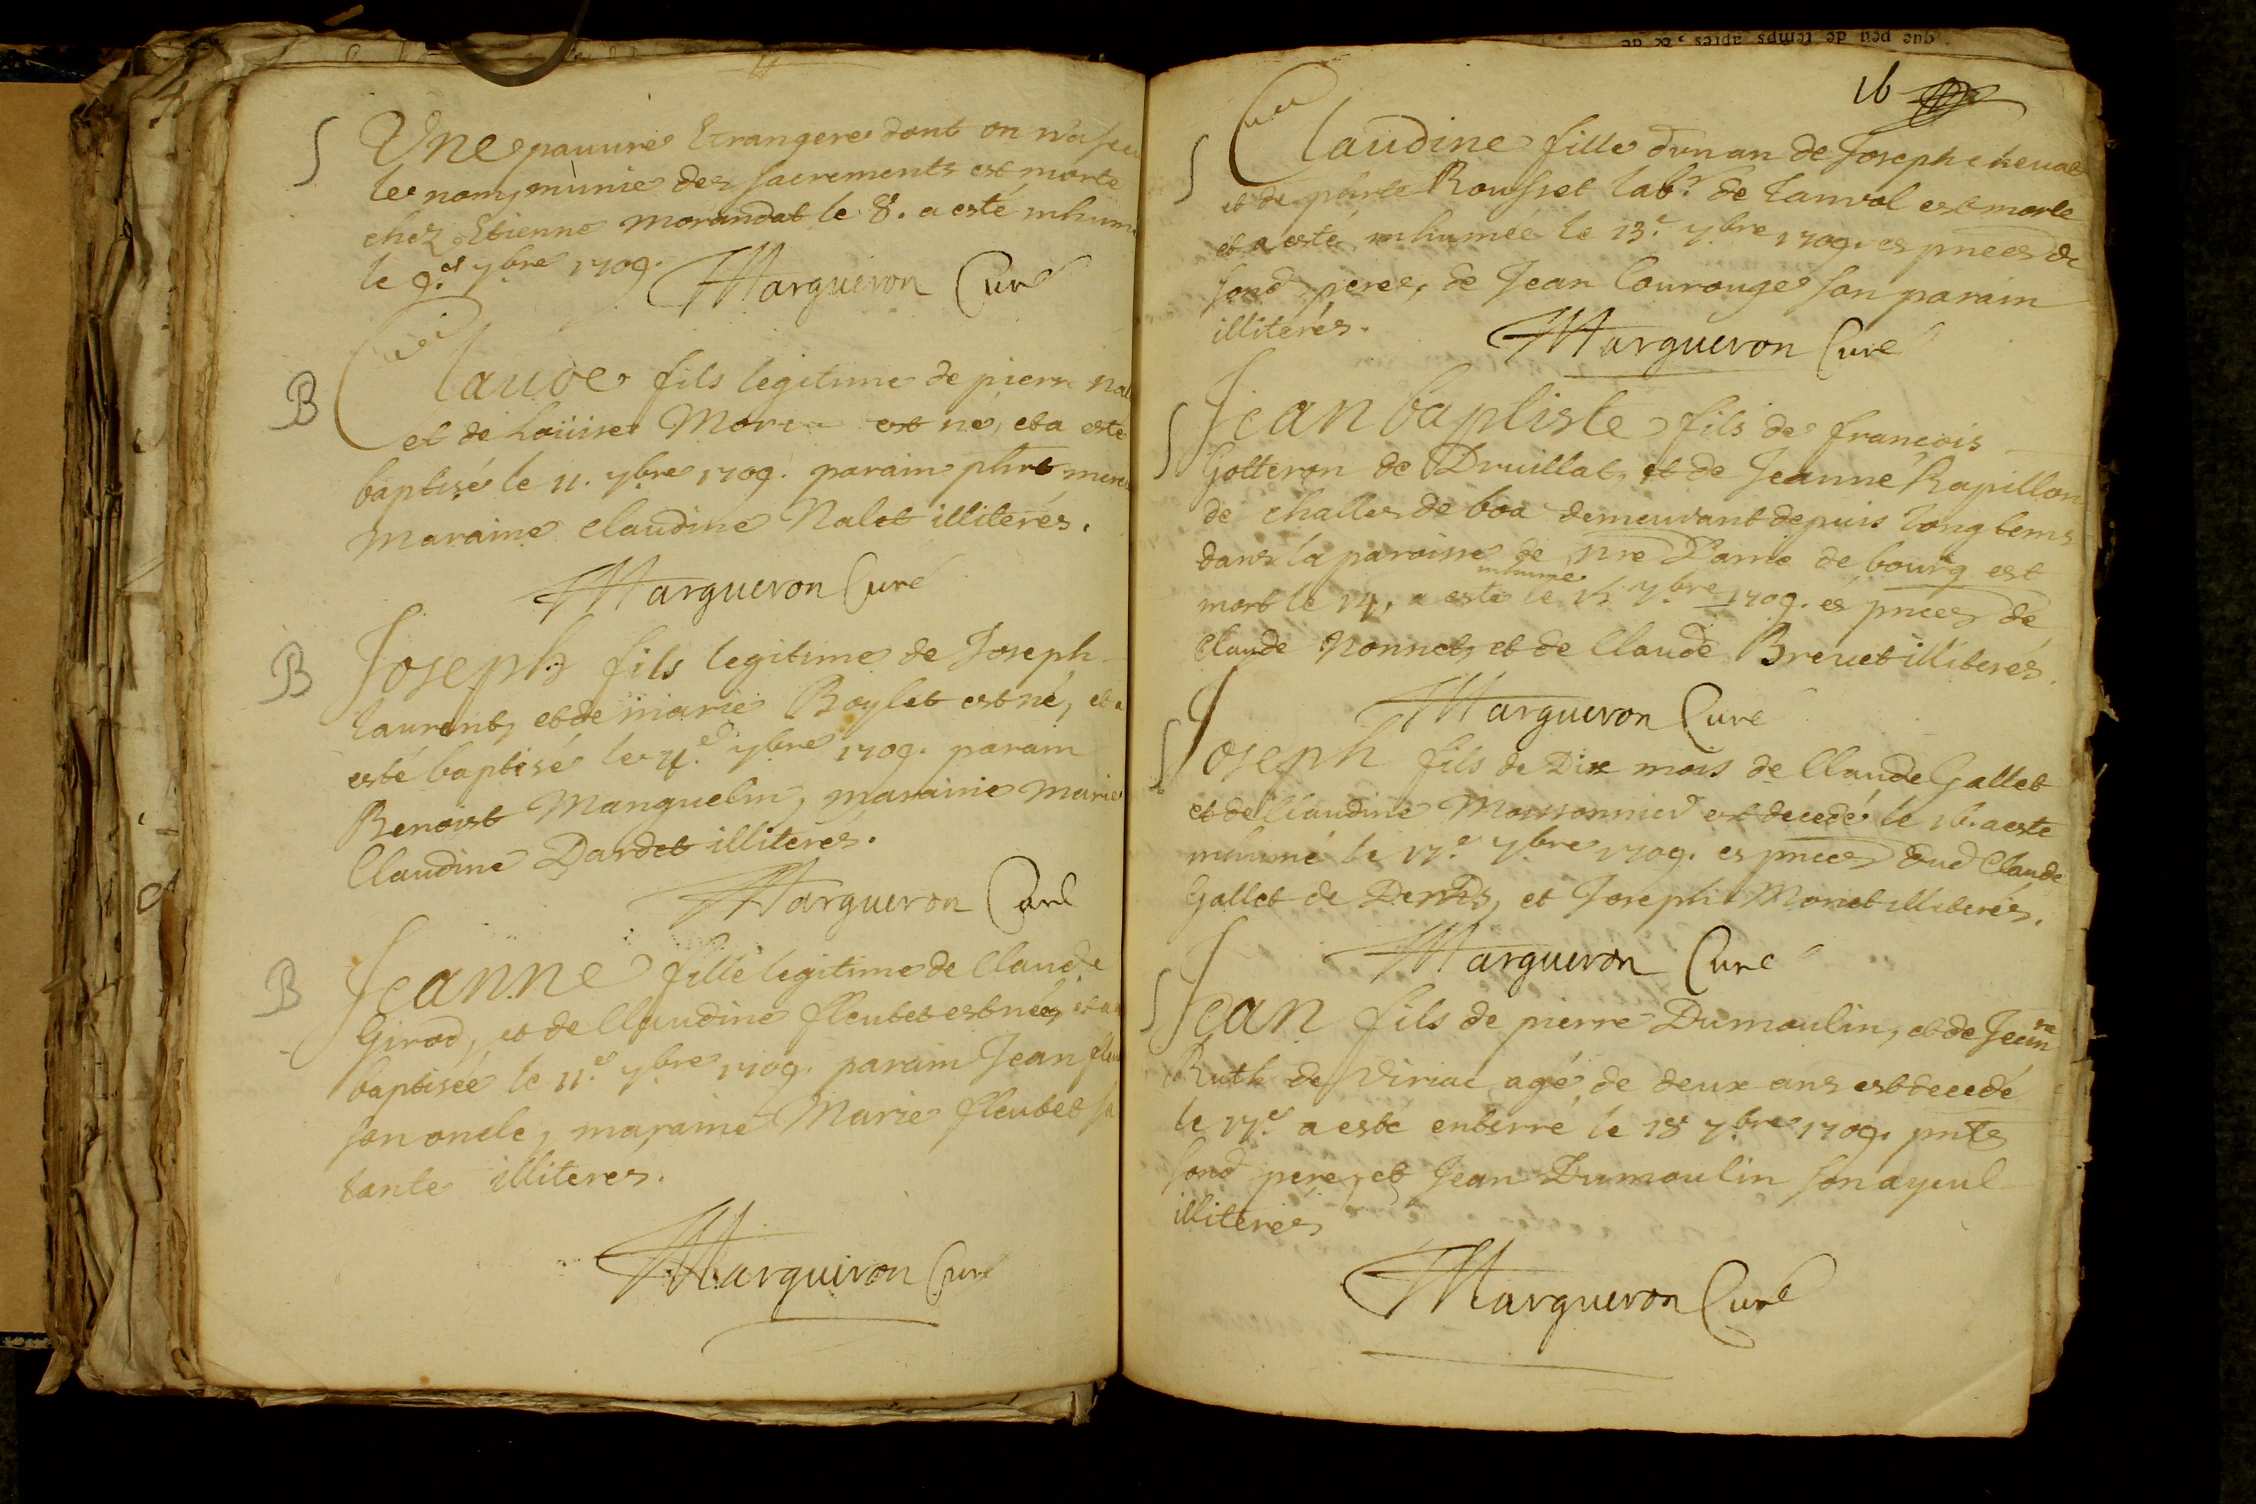 S Une pauure Etrangere dont on n'a sceu
le nom, munie des sacrements est morte
chez Etienne Morandat le 8. a esté inhum
le 9.e 7.bre 1709.
Margueron Curé
B Claude fils legitime de pierre Nal
et de Loüise More est né, et a esté
baptisé le 11. 7.bre 1709. parain phrt
maraine Claudine Nalet illiterés.
Margueron Curé
B Joseph fils legitime de Joseph
Laurent, et de marie Boylet est né, et a
esté baptisé le 7.bre 1709. parain
Benoist Manguelin, maraine marie
Claudine Dardet illiterés.
Margueron Curé
B Jeanne fille legitime de Claude
Girod, et de Claudine fleutet est née, et a
baptisée le 11.e 7.bre 1709. parain Jean fleu
son oncle, maraine Marie fleutet sa
tante illiteres.
Margueron Curé
que peu de temps après, & de
16
S Claudine fille d'un an de Joseph cheual
et de Rousset lab.r de Lanvol est morte
et a esté inhumée le 13.e 7.bre 1709. es pnces de
sond pere, de Jean Courouge son parain
illitérés.
Margueron Curé
S Jean baptiste fils de françois
Gotteron de Druillat, et de Jeanne Rapillon
de challes de boa demeurant depuis longtems
dans la paroisse de nre Dame de bourg est
mort le 14, a esté inhumé le 15 7.bre 1709. es pnces de
Claude Nonnet, et de Claude Breuet illiterés.
Margueron Curé
S Joseph fils de Dix mois de Claude Gallet
et de Claudine Moissonnier est decedé le 16. a esté
inhumé le 17.e 7.bre 1709. es pnces dud Claude
Gallet de Denis, et Joseph Monet illiterés.
Margueron Curé
S Jean fils de pierre Dumoulin, et de Jeanne
Ruth de Viriac agé de deux ans est decedé
le 17.e a esté enterré le 18 7.bre 1709. pnts
sond pere, et Jean Dumoulin son ayeul
illiterés
Margueron Curé